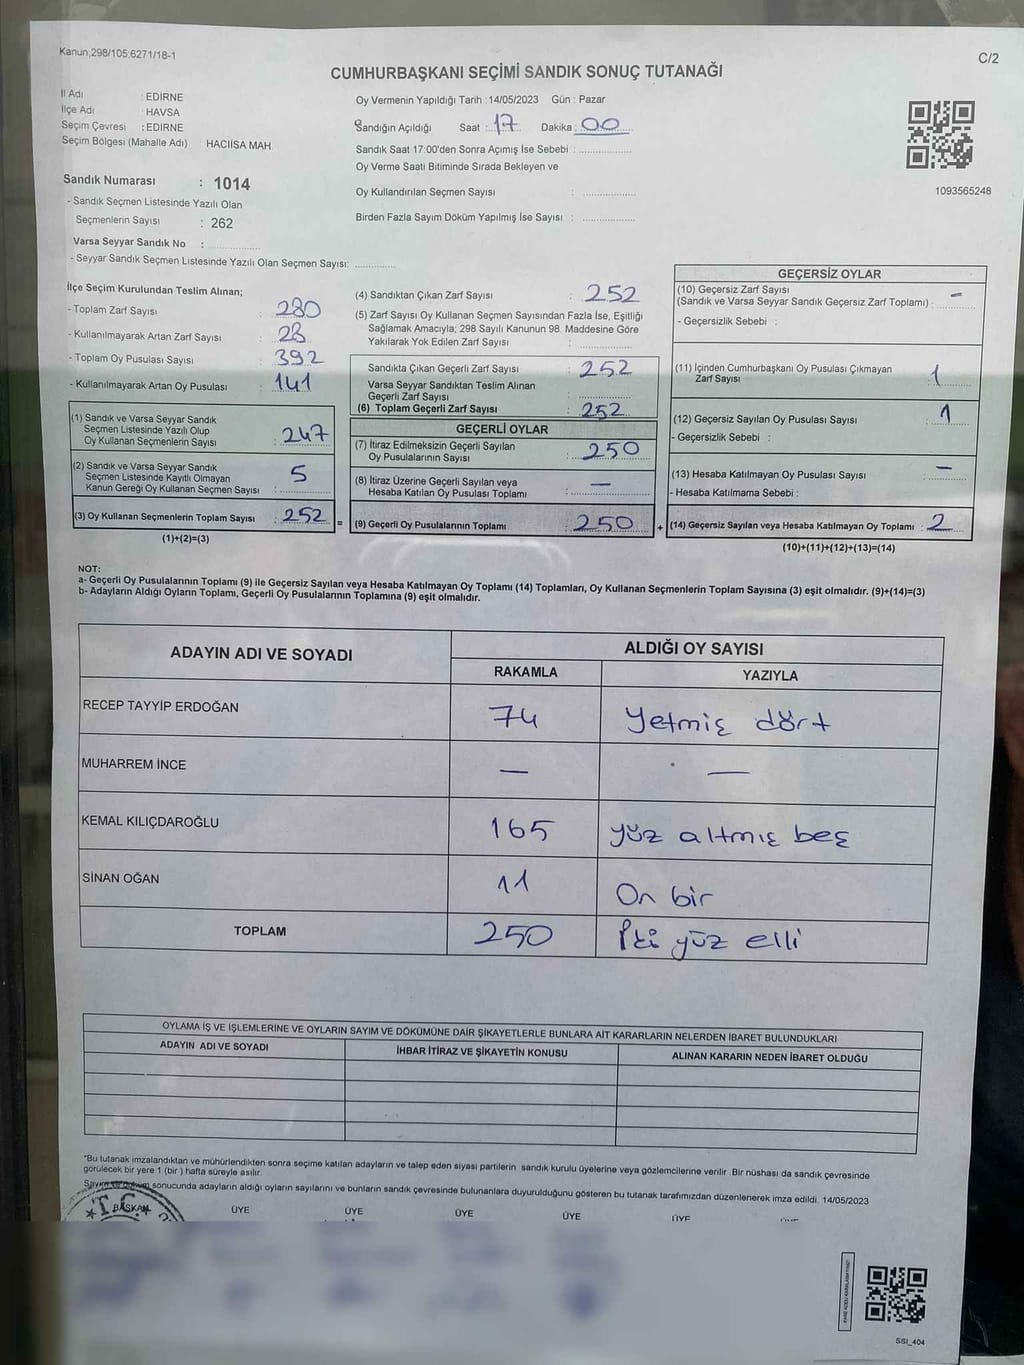 EXIT
Kanun;298/105;6271/18-1
C/2
CUMHURBAŞKANI SEÇİMİ SANDIK SONUÇ TUTANAĞI
İl Adı : EDİRNE
İlçe Adı : HAVSA
Seçim Çevresi : EDİRNE
Seçim Bölgesi (Mahalle Adı) : HACIİSA MAH.
Oy Vermenin Yapıldığı Tarih : 14/05/2023 Gün : Pazar
Sandığın Açıldığı Saat : 17 Dakika : 00
Sandık Saat 17:00'den Sonra Açımış İse Sebebi :
Oy Verme Saati Bitiminde Sırada Bekleyen ve
Oy Kullandırılan Seçmen Sayısı :
Birden Fazla Sayım Döküm Yapılmış İse Sayısı :
1093565248
Sandık Numarası : 1014
- Sandık Seçmen Listesinde Yazılı Olan
Seçmenlerin Sayısı : 262
Varsa Seyyar Sandık No :
- Seyyar Sandık Seçmen Listesinde Yazılı Olan Seçmen Sayısı:
İlçe Seçim Kurulundan Teslim Alınan;
- Toplam Zarf Sayısı : 280
- Kullanılmayarak Artan Zarf Sayısı : 28
- Toplam Oy Pusulası Sayısı : 392
- Kullanılmayarak Artan Oy Pusulası : 141
(1) Sandık ve Varsa Seyyar Sandık
Seçmen Listesinde Yazılı Olup
Oy Kullanan Seçmenlerin Sayısı : 247
(2) Sandık ve Varsa Seyyar Sandık
Seçmen Listesinde Kayıtlı Olmayan
Kanun Gereği Oy Kullanan Seçmen Sayısı : 5
(3) Oy Kullanan Seçmenlerin Toplam Sayısı : 252 =
(1)+(2)=(3)
(4) Sandıktan Çıkan Zarf Sayısı : 252
(5) Zarf Sayısı Oy Kullanan Seçmen Sayısından Fazla İse, Eşitliği
Sağlamak Amacıyla; 298 Sayılı Kanunun 98. Maddesine Göre
Yakılarak Yok Edilen Zarf Sayısı :
Sandıkta Çıkan Geçerli Zarf Sayısı : 252
Varsa Seyyar Sandıktan Teslim Alınan
Geçerli Zarf Sayısı :
(6) Toplam Geçerli Zarf Sayısı : 252
GEÇERLİ OYLAR
(7) İtiraz Edilmeksizin Geçerli Sayılan
Oy Pusulalarının Sayısı : 250
(8) İtiraz Üzerine Geçerli Sayılan veya
Hesaba Katılan Oy Pusulası Toplamı : —
(9) Geçerli Oy Pusulalarının Toplamı : 250 +
GEÇERSİZ OYLAR
(10) Geçersiz Zarf Sayısı
(Sandık ve Varsa Seyyar Sandık Geçersiz Zarf Toplamı) : —
- Geçersizlik Sebebi :
(11) İçinden Cumhurbaşkanı Oy Pusulası Çıkmayan
Zarf Sayısı : 1
(12) Geçersiz Sayılan Oy Pusulası Sayısı : 1
- Geçersizlik Sebebi :
(13) Hesaba Katılmayan Oy Pusulası Sayısı : —
- Hesaba Katılmama Sebebi :
(14) Geçersiz Sayılan veya Hesaba Katılmayan Oy Toplamı : 2
(10)+(11)+(12)+(13)=(14)
NOT:
a- Geçerli Oy Pusulalarının Toplamı (9) ile Geçersiz Sayılan veya Hesaba Katılmayan Oy Toplamı (14) Toplamları, Oy Kullanan Seçmenlerin Toplam Sayısına (3) eşit olmalıdır. (9)+(14)=(3)
b- Adayların Aldığı Oyların Toplamı, Geçerli Oy Pusulalarının Toplamına (9) eşit olmalıdır.
ADAYIN ADI VE SOYADI
ALDIĞI OY SAYISI
RAKAMLA YAZIYLA
RECEP TAYYİP ERDOĞAN 74 Yetmiş dört
MUHARREM İNCE — —
KEMAL KILIÇDAROĞLU 165 yüz altmış beş
SİNAN OĞAN 11 On bir
TOPLAM 250 İki yüz elli
OYLAMA İŞ VE İŞLEMLERİNE VE OYLARIN SAYIM VE DÖKÜMÜNE DAİR ŞİKAYETLERLE BUNLARA AİT KARARLARIN NELERDEN İBARET BULUNDUKLARI
ADAYIN ADI VE SOYADI İHBAR İTİRAZ VE ŞİKAYETİN KONUSU ALINAN KARARIN NEDEN İBARET OLDUĞU
*Bu tutanak imzalandıktan ve mühürlendikten sonra seçime katılan adayların ve talep eden siyasi partilerin sandık kurulu üyelerine veya gözlemcilerine verilir. Bir nüshası da sandık çevresinde
görülecek bir yere 1 (bir ) hafta süreyle asılır.
sonucunda adayların aldığı oyların sayılarını ve bunların sandık çevresinde bulunanlara duyurulduğunu gösteren bu tutanak tarafımızdan düzenlenerek imza edildi. 14/05/2023
T.C.
BAŞKAN ÜYE ÜYE ÜYE ÜYE ÜYE
SSI_404